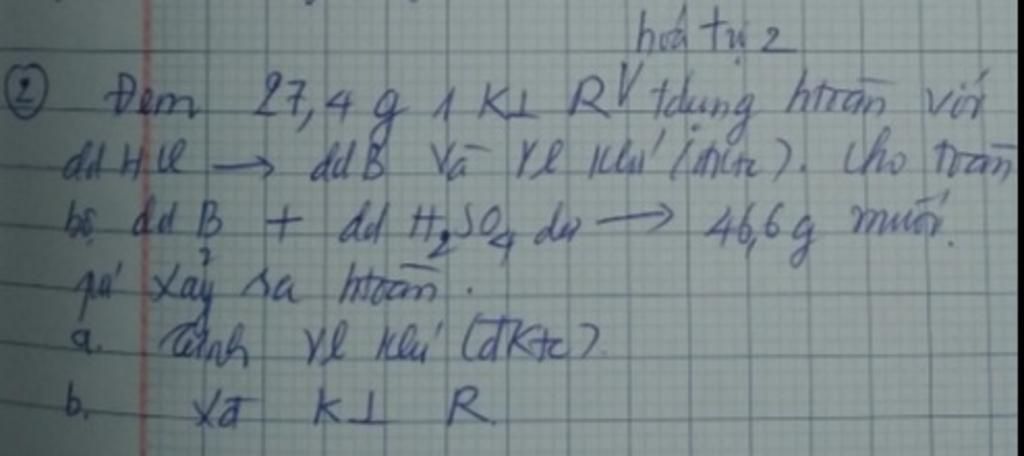 hoá trị 2
② Đem 27,4 g 1 K⊥ R tdụng htoàn với
dd HCl → ddB và Vl khí (đktc). Cho toàn
bộ dd B + dd H₂SO₄ dư → 46,6 g muối.
pứ xảy ra htoàn.
a. Tính Vl khí (đktc)
b. Xđ K⊥ R